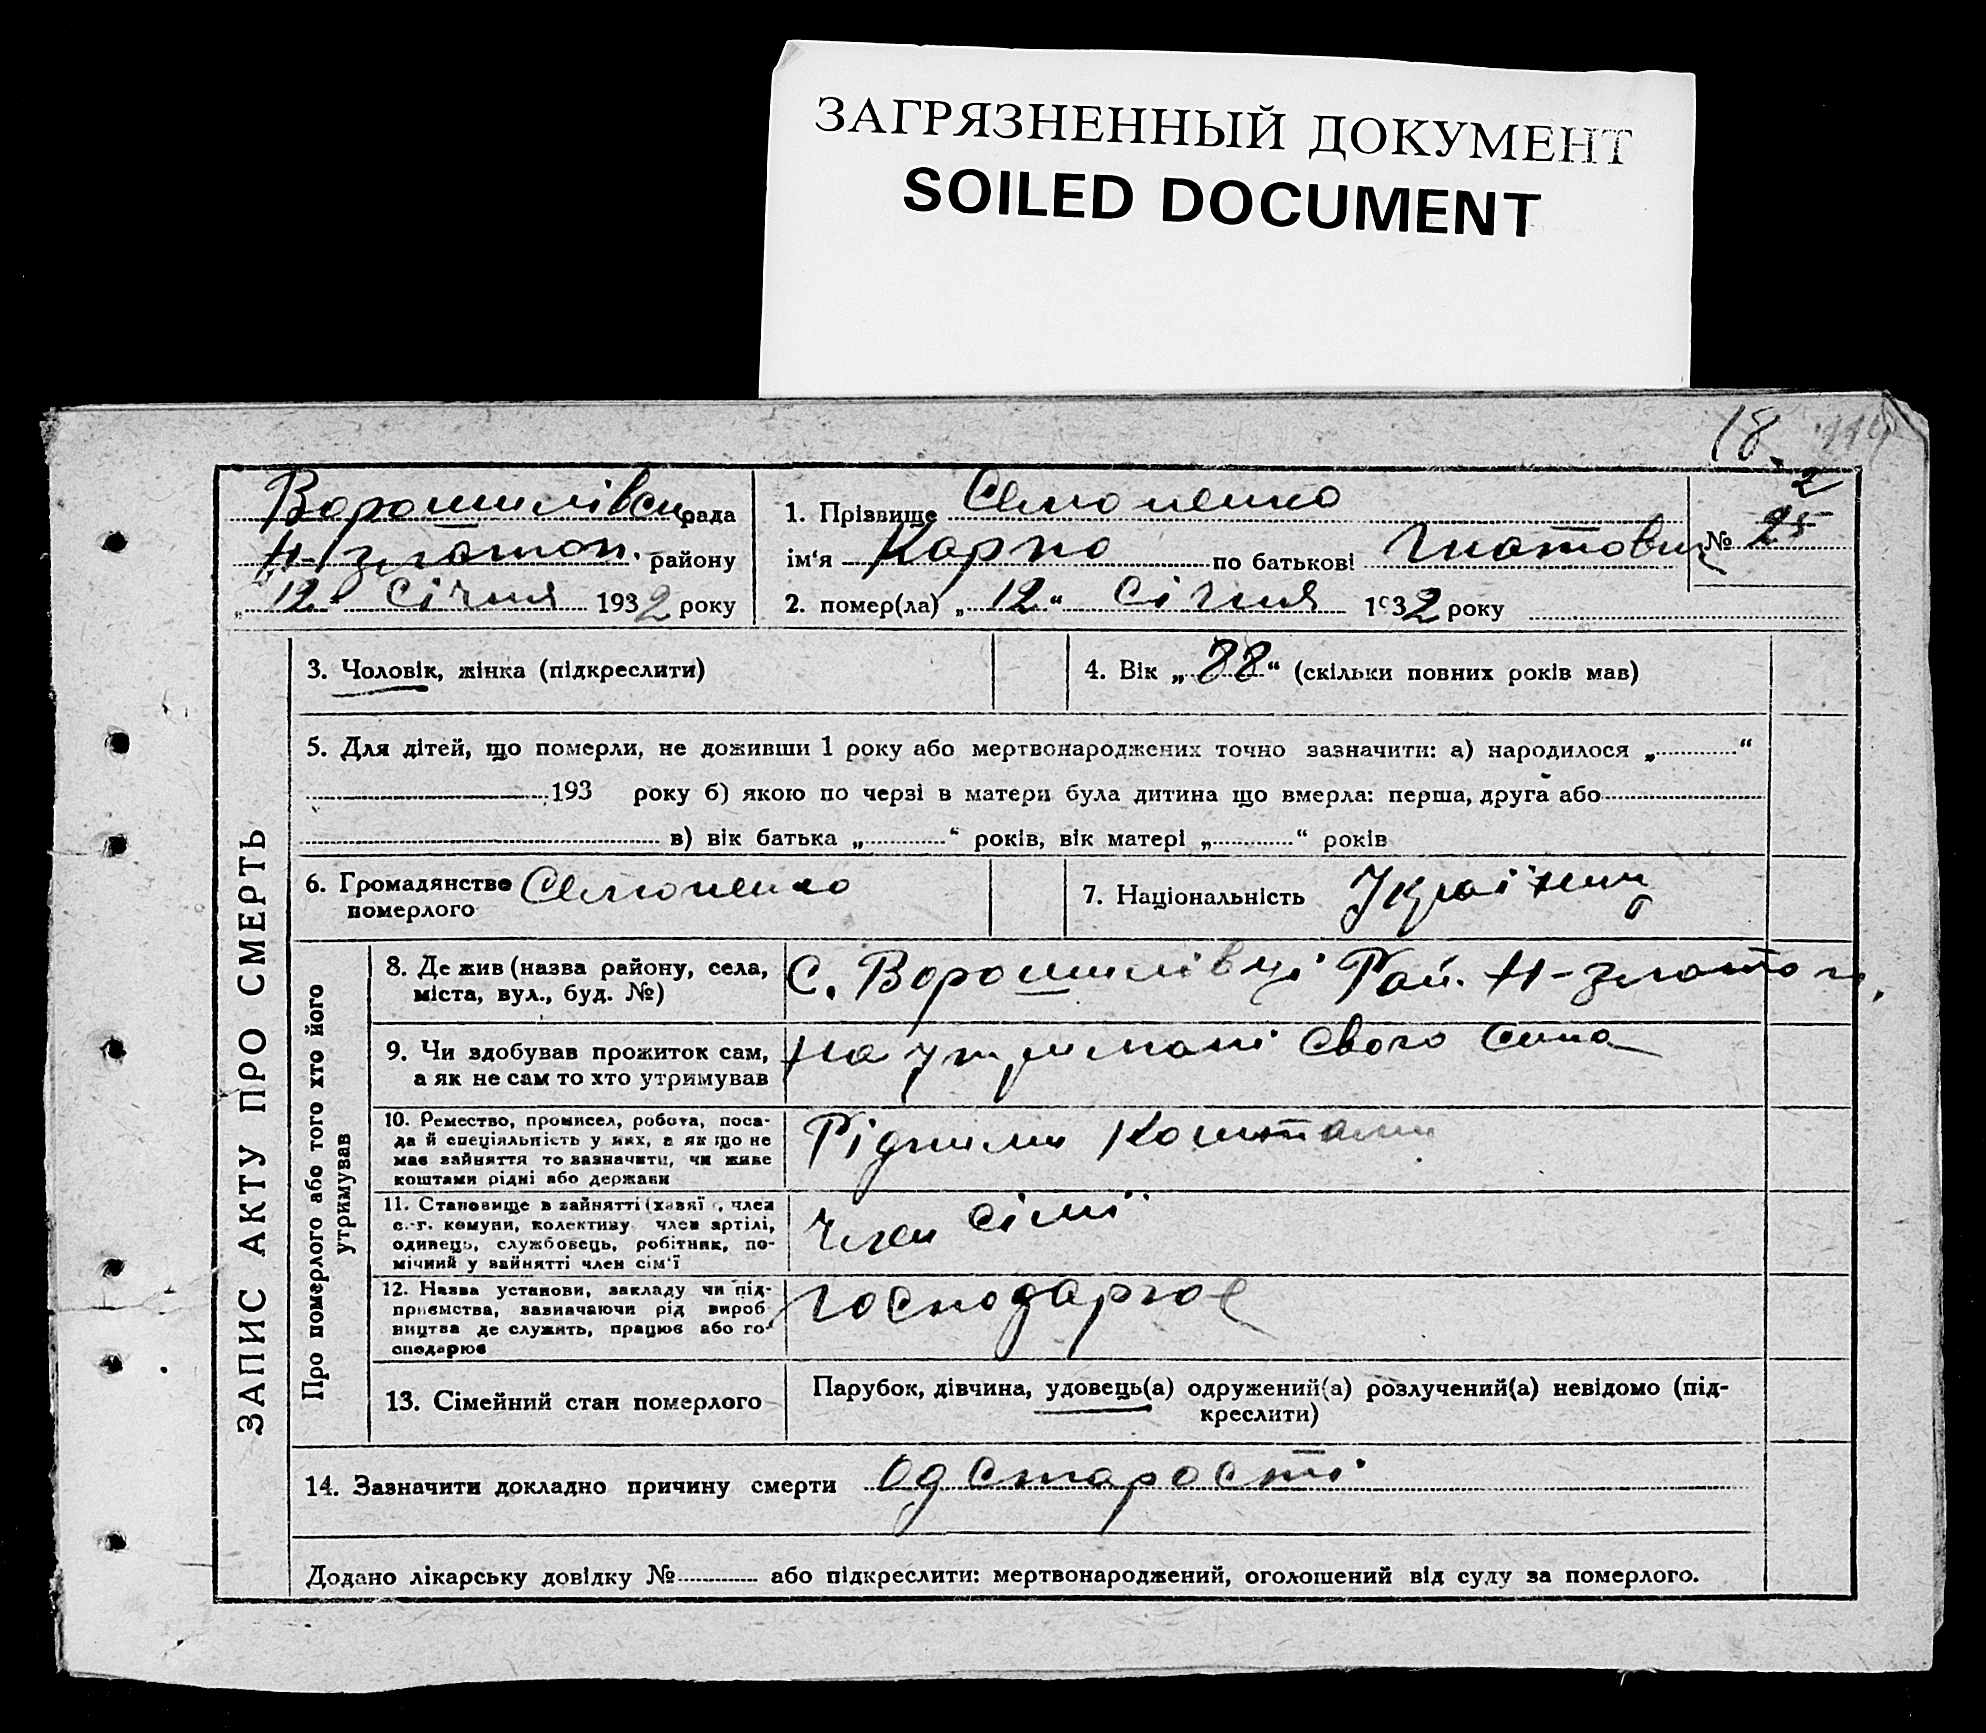 ЗАГРЯЗНЕННЫЙ ДОКУМЕНТ
SOILED DOCUMENT
18.
Ворошилівська рада
Н-златоп. району
„12“ Січня 1932 року
1. Прізвище Семоненко
ім‘я Карпо по батькові Гнатович
2. помер(ла) „12“ Січня 1932 року
№ 25
2
ЗАПИС АКТУ ПРО СМЕРТЬ
3. Чоловік, жінка (підкреслити)
4. Вік „88“ (скільки повних років мав)
5. Для дітей, що померли, не доживши 1 року або мертвонароджених точно зазначити: а) народилося „ “
193 року б) якою по черзі в матери була дитина що вмерла: перша, друга або
в) вік батька „ “ років, вік матері „ “ років
6. Громадянство Семоненко
померлого
7. Національність Українец
Про померлого або того хто його
утримував
8. Де жив (назва району, села,
міста, вул., буд. №)
С. Ворошилівці Рай. Н-златоп.
9. Чи здобував прожиток сам,
а як не сам то хто утримував
На утримані свого сина
10. Ремество, промисел, робота, поса-
да й спеціяльність у них, а як що не
має зайняття то зазначити, чи живе
коштами рідні або держави
Рідними коштами
11. Становище в зайнятті (хазяї , член
с.-г. комуни, колективу член артілі,
одинець, службовець, робітник, по-
мічний у зайнятті член сім‘ї
Член сімї
12. Назва установи, закладу чи під-
приємства, зазначаючи рід вироб
ництва де служить, працює або го-
сподарює
господарює
13. Сімейний стан померлого
Парубок, дівчина, удовець(а) одружений(а) розлучений(а) невідомо (під-
креслити)
14. Зазначити докладно причину смерти Од старості
Додано лікарську довідку № або підкреслити: мертвонароджений, оголошений від суду за померлого.